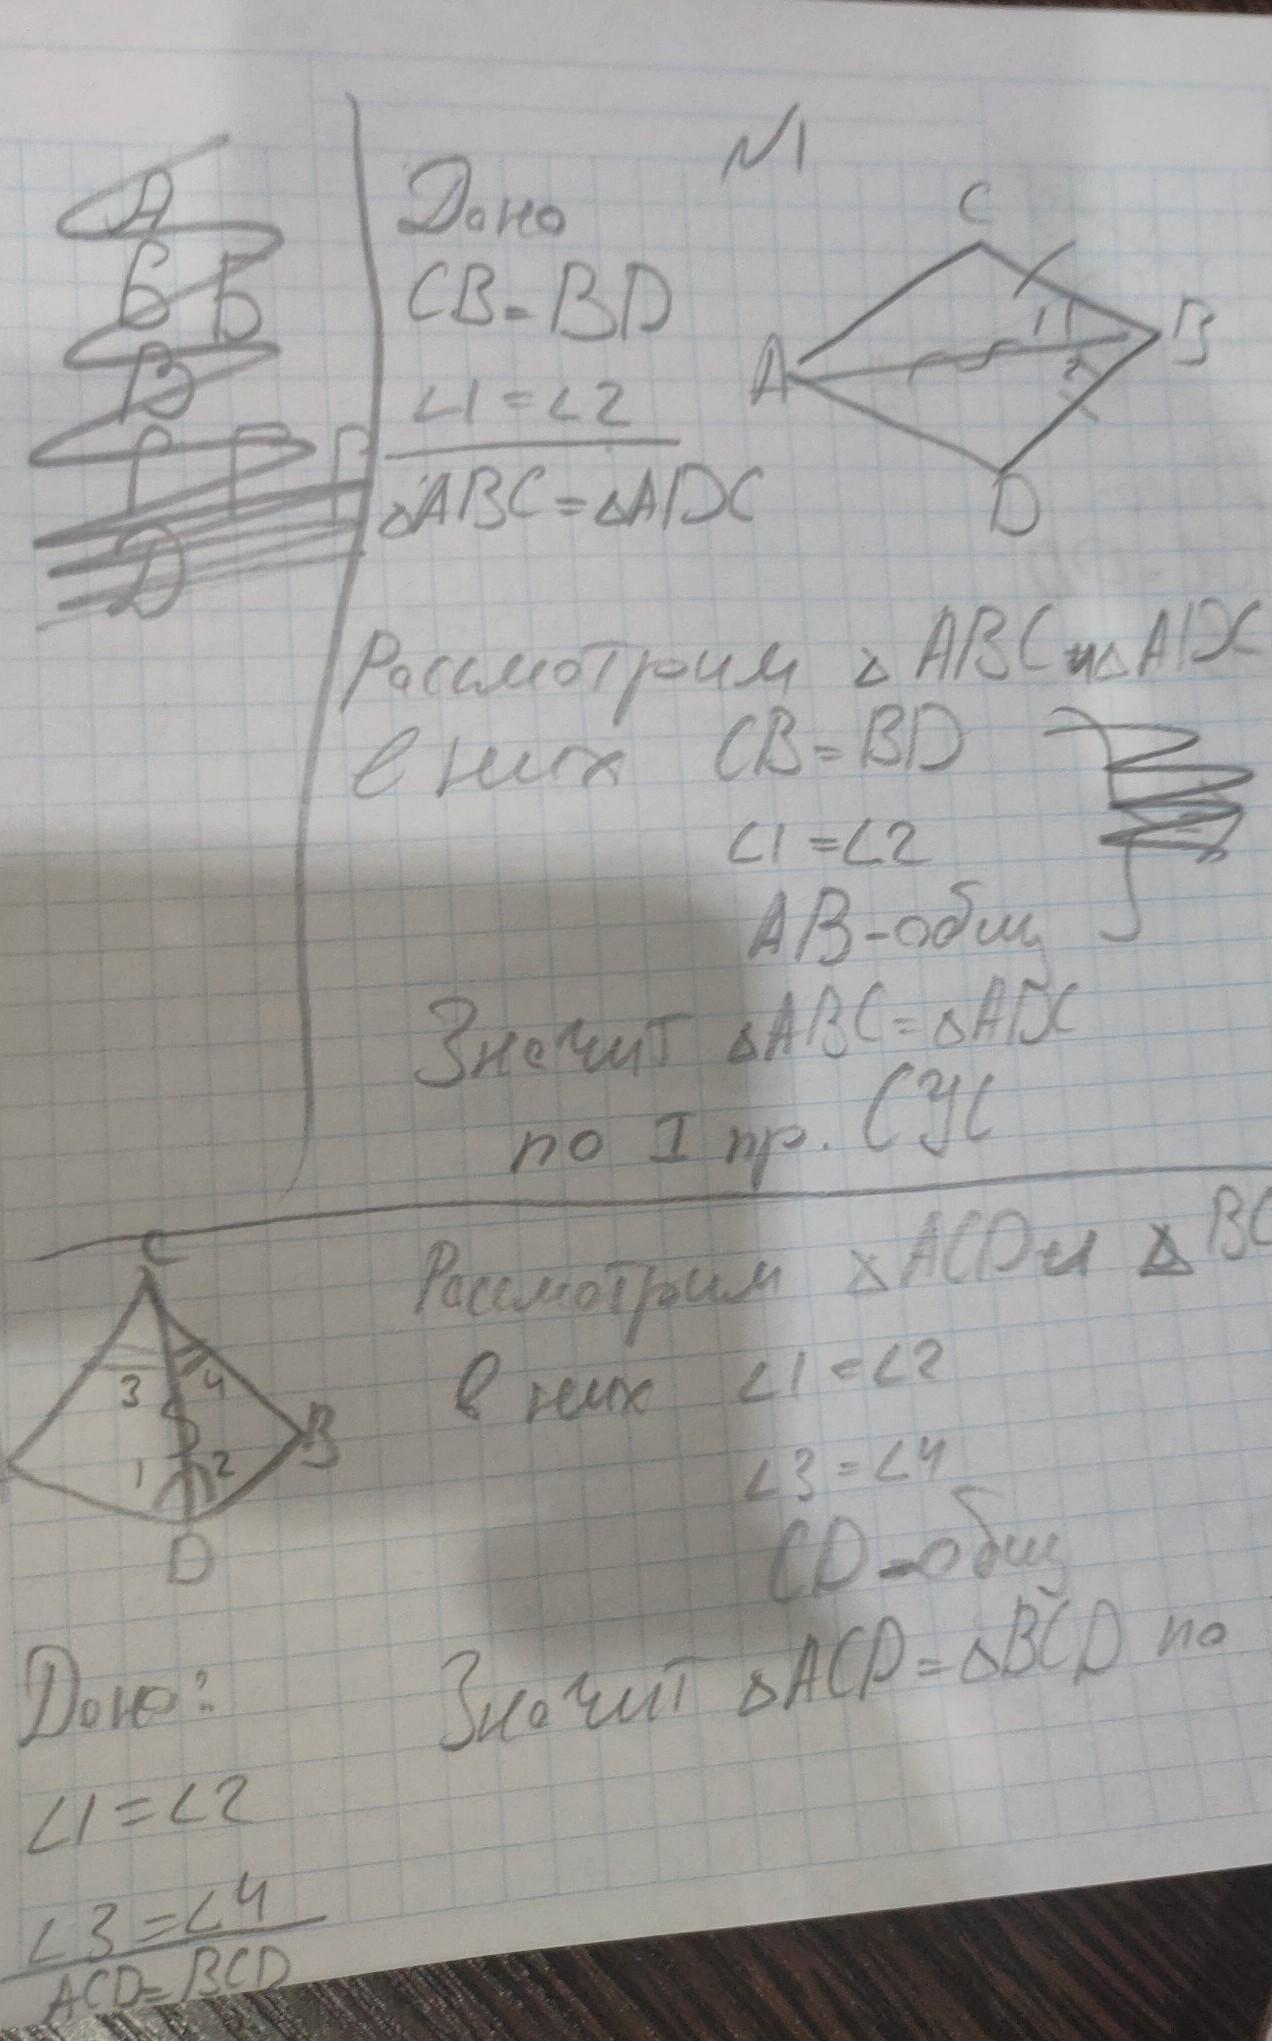 А
Б Б
В
Г Г Г
Д
N1
Дано
CB=BD
∠1=∠2
△ABC=△ADC
C
A
B
D
1
2
Рассмотрим △ABC и △ADC
в них CB=BD
∠1=∠2
AB-общ
Значит △ABC=△ADC
по I пр. СУС
C
3 4
1 2
B
D
Рассмотрим △ACD и △BC
в них ∠1=∠2
∠3=∠4
CD-общ
Значит △ACD=△BCD по
Дано:
∠1=∠2
∠3=∠4
ACD=BCD